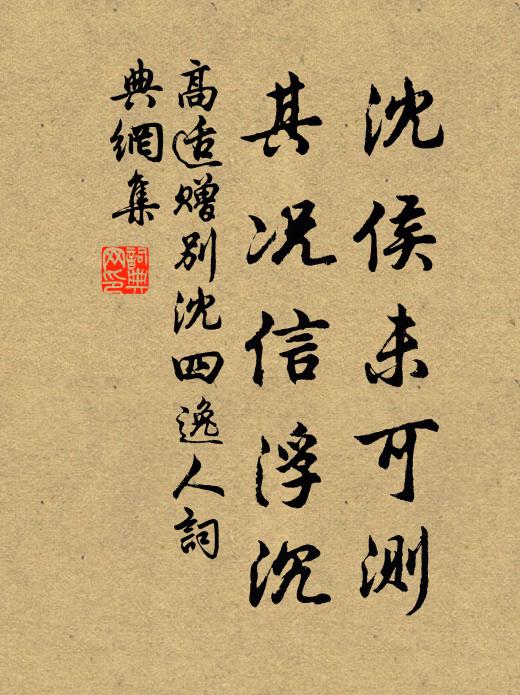 沈侯未可测
其况信浮沉
高适赠别沈四逸人詞
典網集
詞典
网印